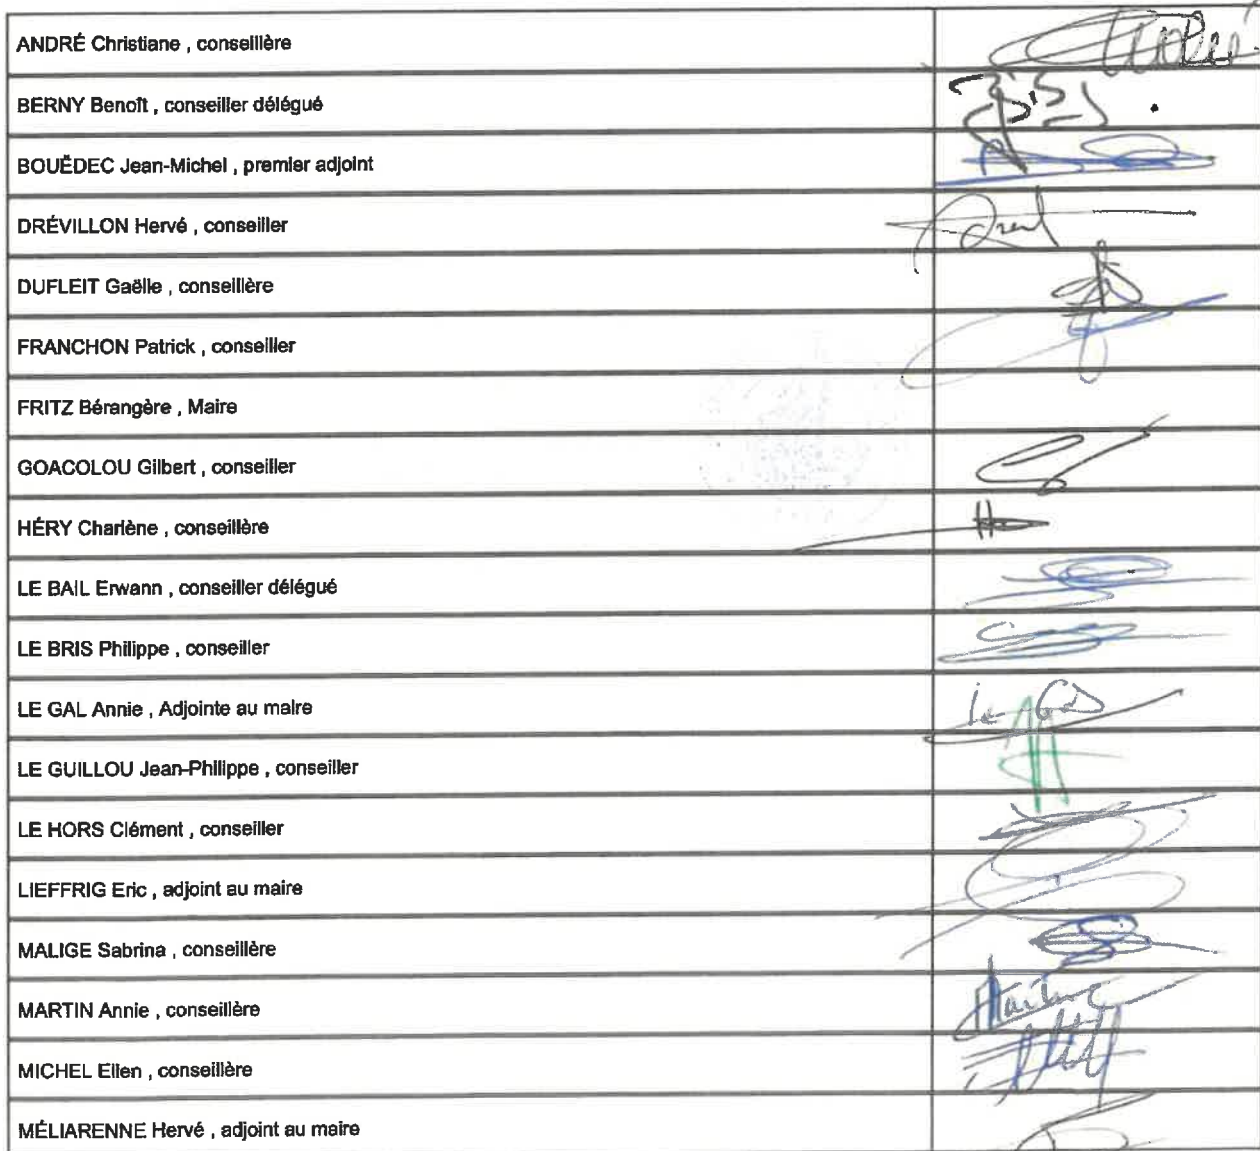 ANDRÉ Christiane , conseillère
BERNY Benoît , conseiller délégué
BOUËDEC Jean-Michel , premier adjoint
DRÉVILLON Hervé , conseiller
DUFLEIT Gaëlle , conseillère
FRANCHON Patrick , conseiller
FRITZ Bérangère , Maire
GOACOLOU Gilbert , conseiller
HÉRY Charlène , conseillère
LE BAIL Erwann , conseiller délégué
LE BRIS Philippe , conseiller
LE GAL Annie , Adjointe au maire
Le Gal
LE GUILLOU Jean-Philippe , conseiller
LE HORS Clément , conseiller
LIEFFRIG Eric , adjoint au maire
MALIGE Sabrina , conseillère
MARTIN Annie , conseillère
MICHEL Ellen , conseillère
MÉLIARENNE Hervé , adjoint au maire